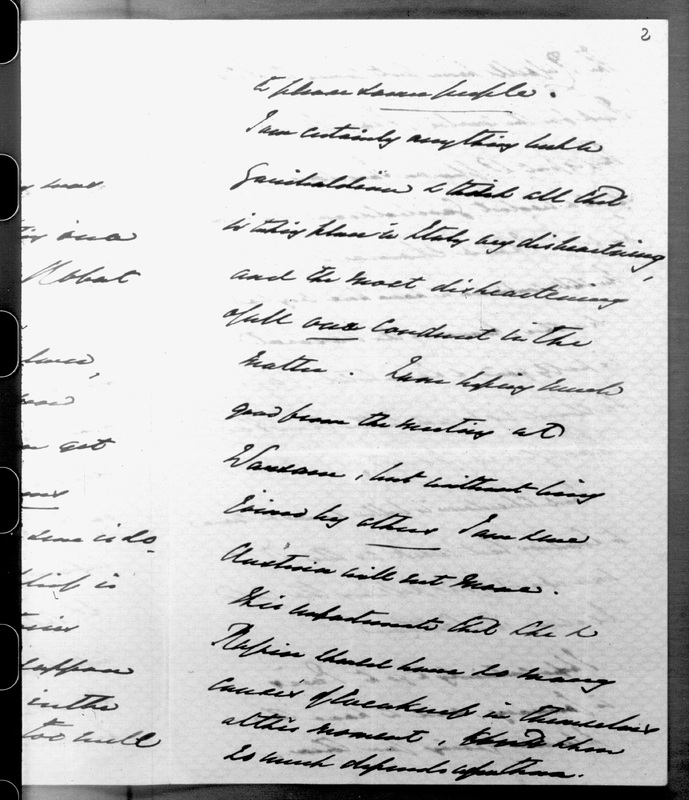 2
to please some people.
I am certainly anything but a
Garibaldian & think all that
is taking place in Italy very disheartening,
and the most disheartening
of all our conduct in the
matter. I am hoping much
good from the meeting at
Warsaw, but without being
joined by others I am sure
Austria will not move.
It is unfortunate that she &
Russia should have so many
causes of weakness in themselves
at this moment, when
so much depends upon them.
was
in a
Robert
get
some is do
in the
too well